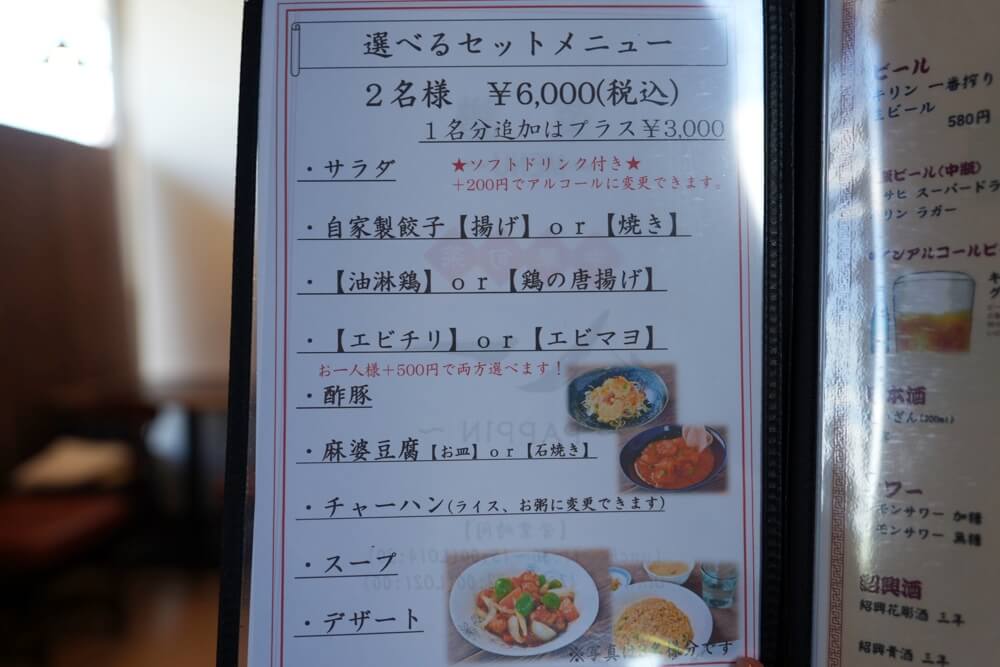 選べるセットメニュー
２名様　￥6,000(税込)
１名分追加はプラス￥3,000
・サラダ
★ソフトドリンク付き★
＋200円でアルコールに変更できます。
・自家製餃子【揚げ】ｏｒ【焼き】
・【油淋鶏】ｏｒ【鶏の唐揚げ】
・【エビチリ】ｏｒ【エビマヨ】
お一人様＋500円で両方選べます！
・酢豚
・麻婆豆腐【お皿】ｏｒ【石焼き】
・チャーハン(ライス、お粥に変更できます)
・スープ
・デザート
ビール
キリン 一番搾り
生ビール
580円
ビール(中瓶)
アサヒ スーパードラ
キリン ラガー
ノンアルコールビ
日本酒
(200ml)
サワー
レモンサワー 加糖
レモンサワー 無糖
紹興酒
紹興花彫酒 三年
紹興貴酒 三年